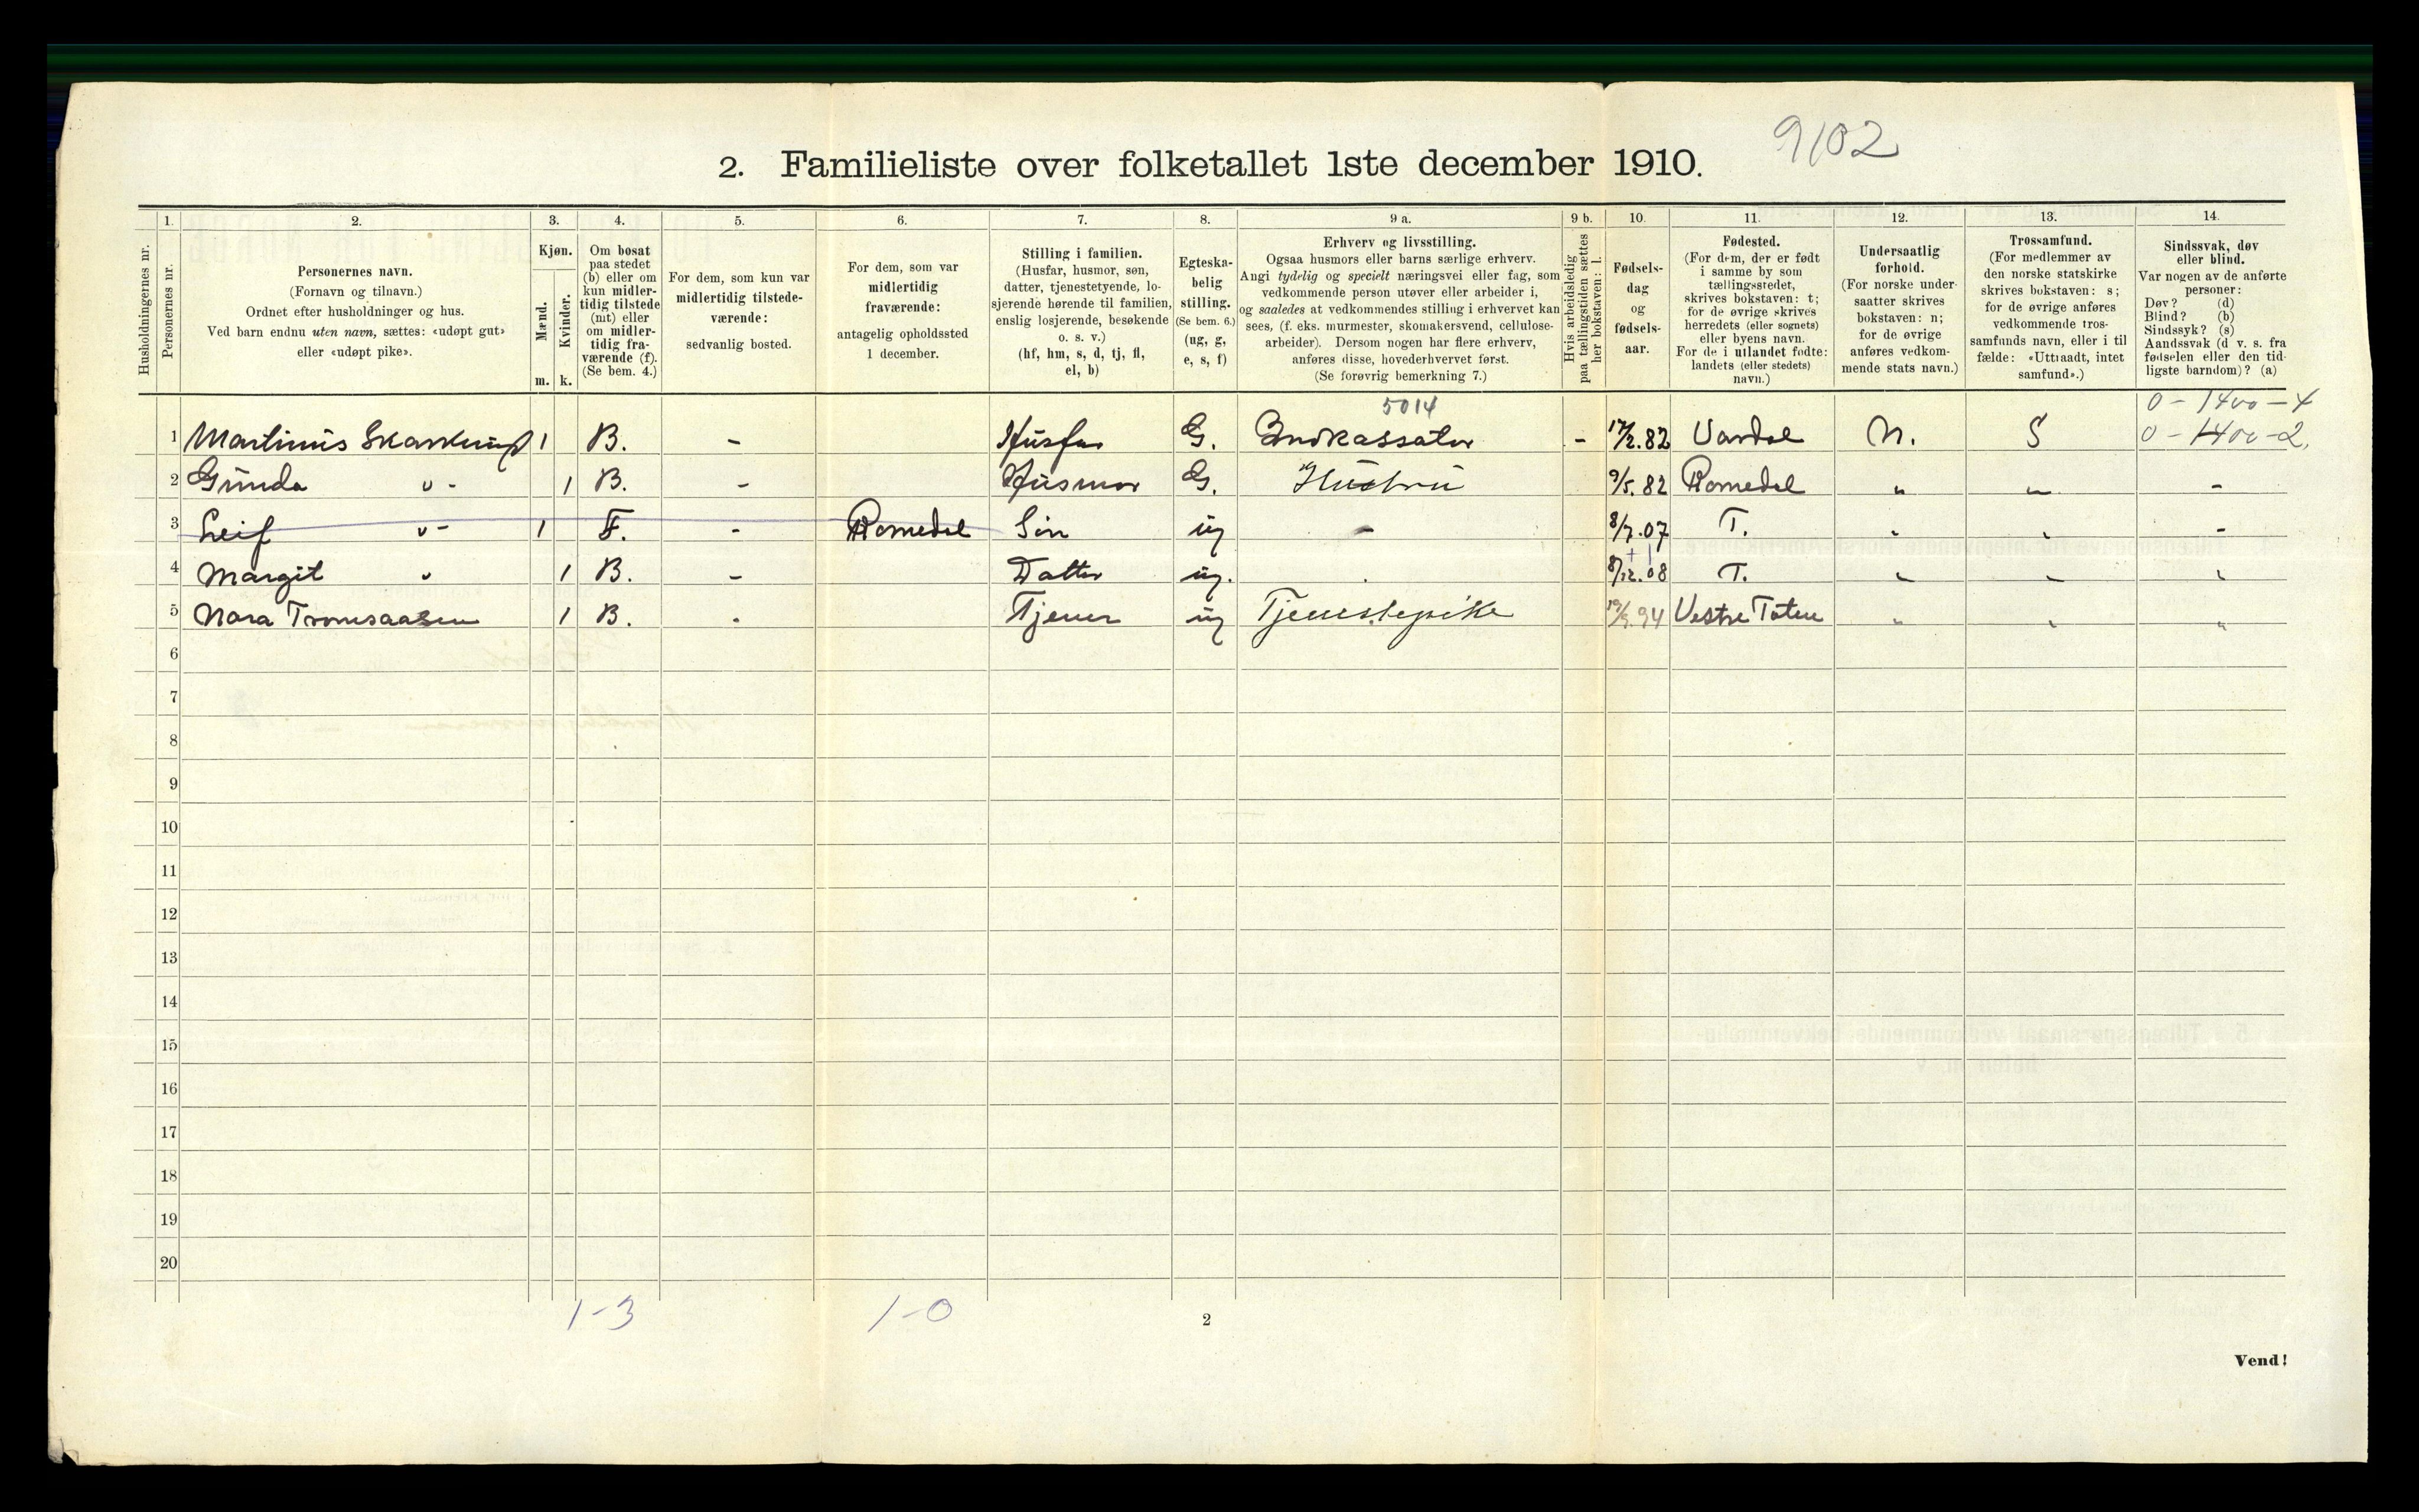 9102
2. Familieliste over folketallet 1ste december 1910.
Husholdningernes nr.
1.
Personernes nr.
2.
Personernes navn.
(Fornavn og tilnavn.)
Ordnet efter husholdninger og hus.
Ved barn endnu uten navn, sættes: «udøpt gut»
eller «udøpt pike».
3.
Kjøn.
Mænd.
m.
Kvinder.
k.
4.
Om bosat
paa stedet
(b) eller om
kun midler-
tidig tilstede
(mt) eller
om midler-
tidig fra-
værende (f).
(Se bem. 4.)
5.
For dem, som kun var
midlertidig tilstede-
værende:
sedvanlig bosted.
6.
For dem, som var
midlertidig
fraværende:
antagelig opholdssted
1 december.
7.
Stilling i familien.
(Husfar, husmor, søn,
datter, tjenestetyende, lo-
sjerende hørende til familien,
enslig losjerende, besøkende
o. s. v.)
(hf, hm, s, d, tj, fl,
el, b)
8.
Egteska-
belig
stilling.
(Se bem. 6.)
(ug, g,
e, s, f)
9 a.
Erhverv og livsstilling.
Ogsaa husmors eller barns særlige erhverv.
Angi tydelig og specielt næringsvei eller fag, som
vedkommende person utøver eller arbeider i,
og saaledes at vedkommendes stilling i erhvervet kan
sees, (f. eks. murmester, skomakersvend, cellulose-
arbeider). Dersom nogen har flere erhverv,
anføres disse, hovederhvervet først.
(Se forøvrig bemerkning 7.)
9 b.
Hvis arbeidsledig
paa tællingstiden sættes
her bokstaven: l.
10.
Fødsels-
dag
og
fødsels-
aar.
11.
Fødested.
(For dem, der er født
i samme by som
tællingsstedet,
skrives bokstaven: t;
for de øvrige skrives
herredets (eller sognets)
eller byens navn.
For de i utlandet fødte:
landets (eller stedets)
navn.)
12.
Undersaatlig
forhold.
(For norske under-
saatter skrives
bokstaven: n;
for de øvrige
anføres vedkom-
mende stats navn.)
13.
Trossamfund.
(For medlemmer av
den norske statskirke
skrives bokstaven: s;
for de øvrige anføres
vedkommende tros-
samfunds navn, eller i til
fælde: «Uttraadt, intet
samfund».)
14.
Sindssvak, døv
eller blind.
Var nogen av de anførte
personer:
Døv? (d)
Blind? (b)
Sindssyk? (s)
Aandssvak (d v. s. fra
fødselen eller den tid-
ligste barndom)? (a)
5014 0 - 1400 - 4
1 Martinius 1 B. - Husfar G. Inkassator - 17/2.82 Vardal N. S 0 - 1400 - 2.
2 Gunda " - 1 B. - Husmor G. Hustru 9/5.82 Romedal " " -
3 Leif " - 1 F. - Romedal Søn ug - 8/7.07 T. " " -
4 Margit " 1 B. - Datter ug. . 8/12.08 T. " " "
5 Nora Tromsaasen 1 B. . Tjener ug Tjenestepike 94 Vestre Toten " " "
6
7
8
9
10
11
12
13
14
15
16
17
18
19
20
1-3 1-0
2
Vend!